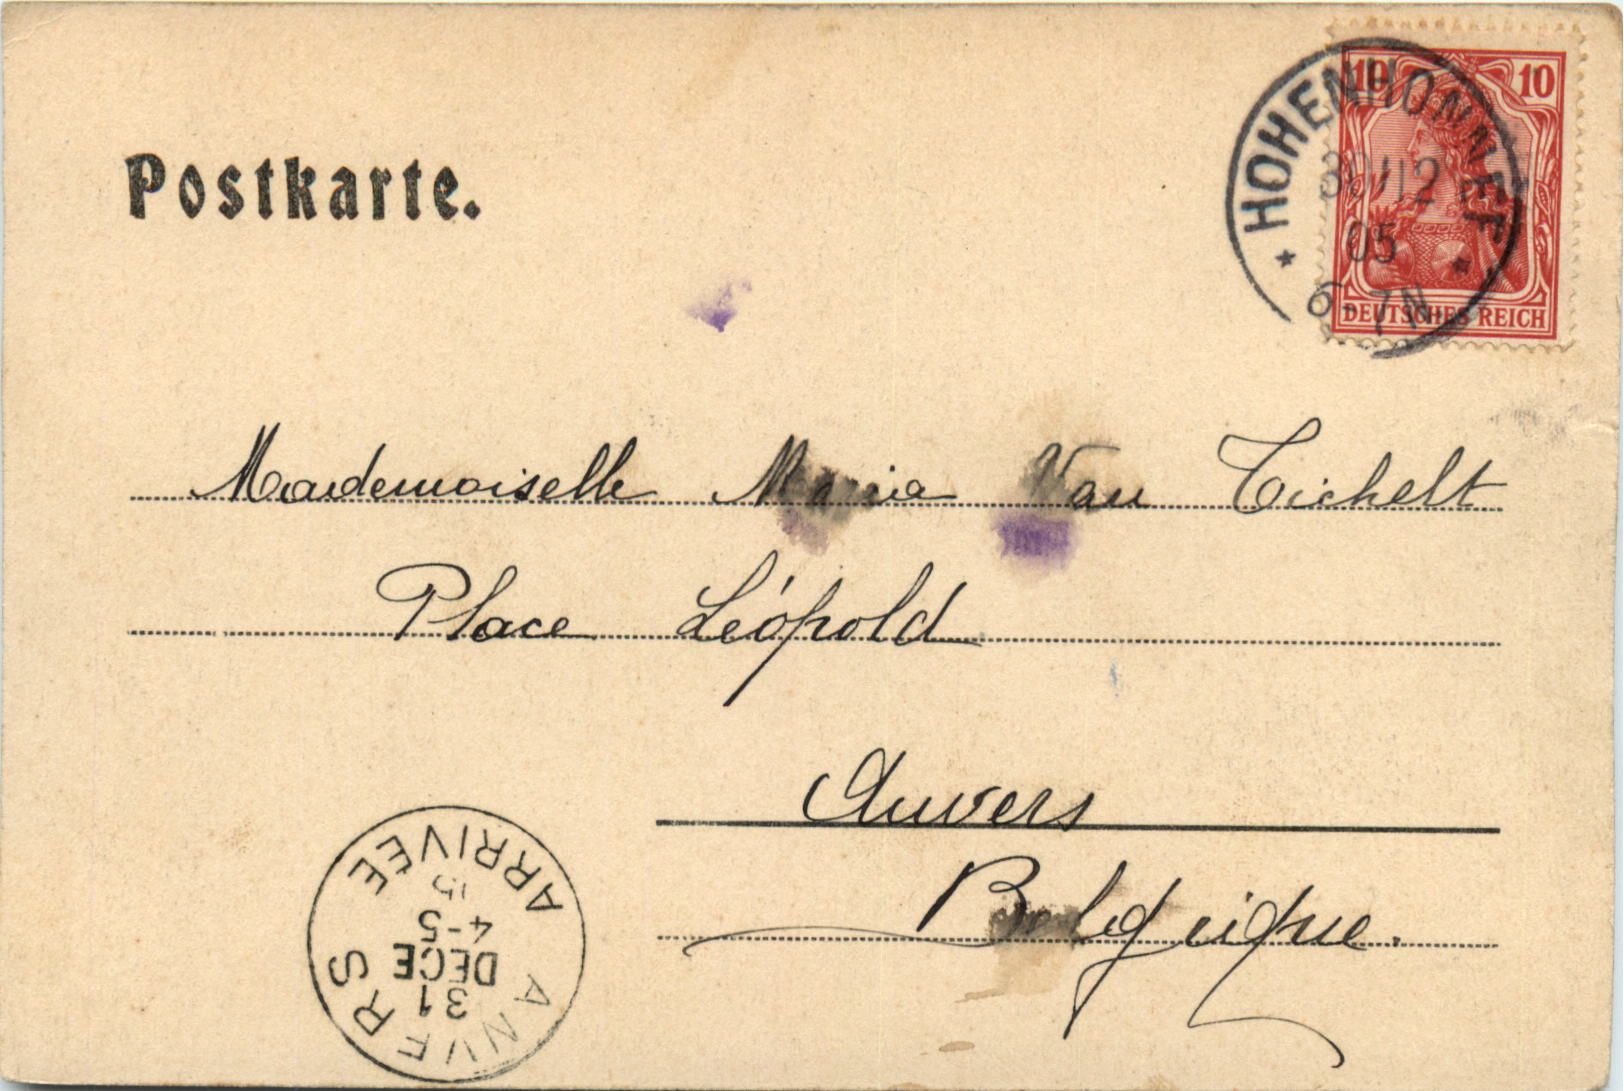 Postkarte.
10 10
DEUTSCHES REICH
HOHENHONNEF
30/12
05
6-7N
Mademoiselle Maria Van Tichelt
Place Léopold
Anvers
Belgique.
ANVERS
31
DECE
4-5
ARRIVÉE